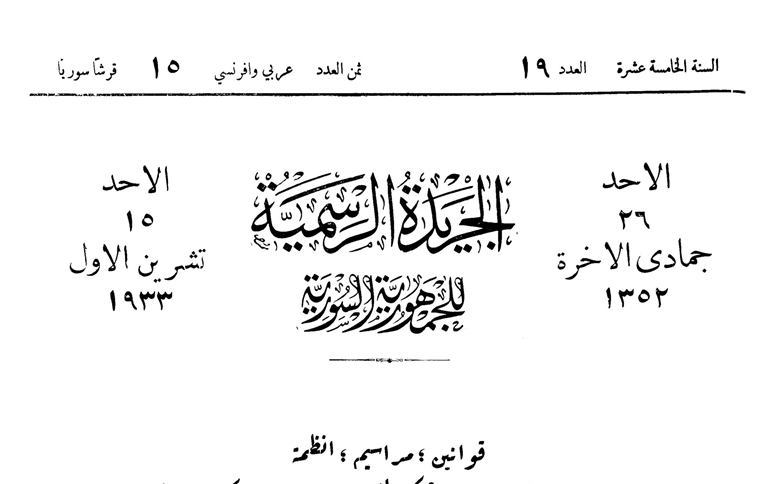 السنة الخامسة عشرة العدد ١٩ ثمن العدد عربي وافرنسي ١٥ قرشا سوريا
الاحد
٢٦
جمادى الاخرة
١٣٥٢
الجريدة الرسمية
للجمهورية السورية
الاحد
١٥
تشرين الاول
١٩٣٣
قوانين ؛ مراسيم ؛ انظمة